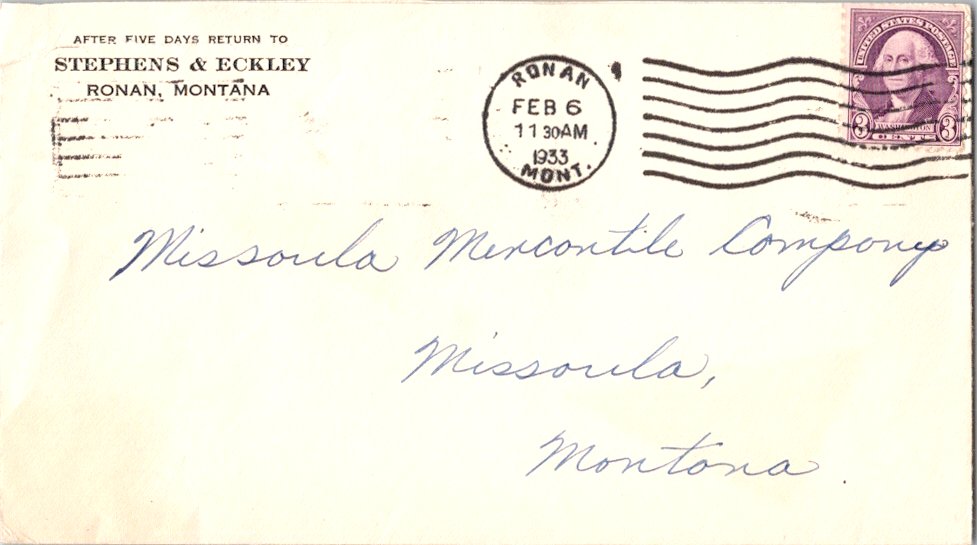 AFTER FIVE DAYS RETURN TO
STEPHENS & ECKLEY
RONAN, MONTANA
RONAN
FEB 6
11 30 AM
1933
MONT.
UNITED STATES POSTAGE
WASHINGTON
3 3
Missoula Mercantile Company
Missoula,
Montana.